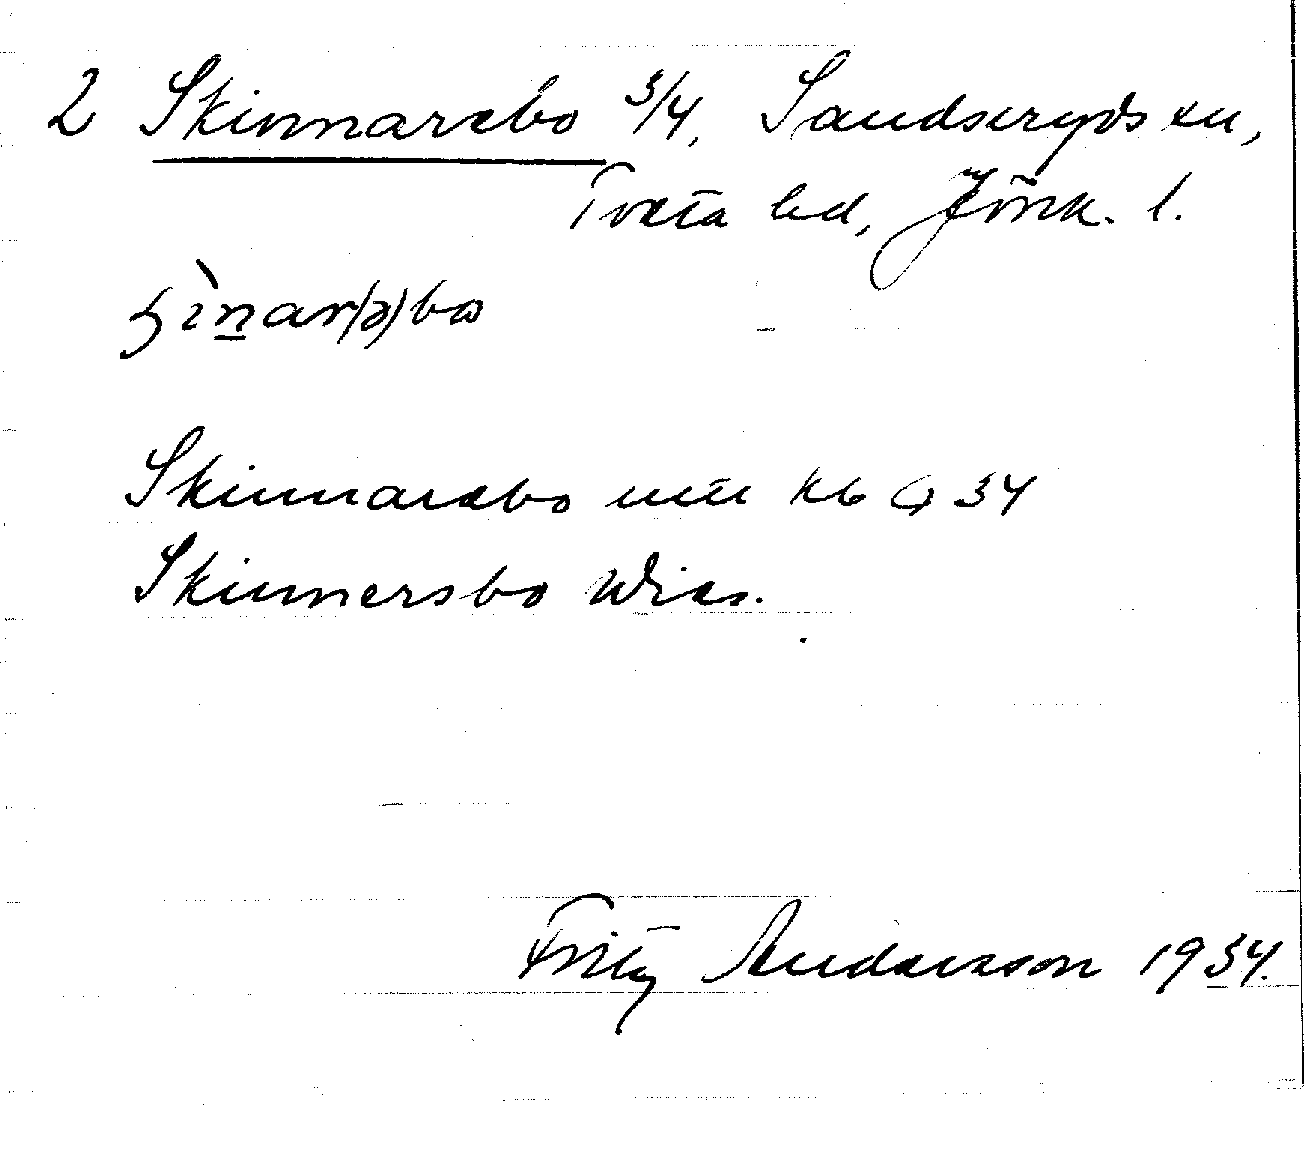 2 Skinnarebo 3/4, Sandseryds sn,
Tveta hd, Jönk. l.
ʂìnar(ə)bω
Skinnarebo mtl kb 34
Skinnersbo Wies.
Fritz Andersson 1934.